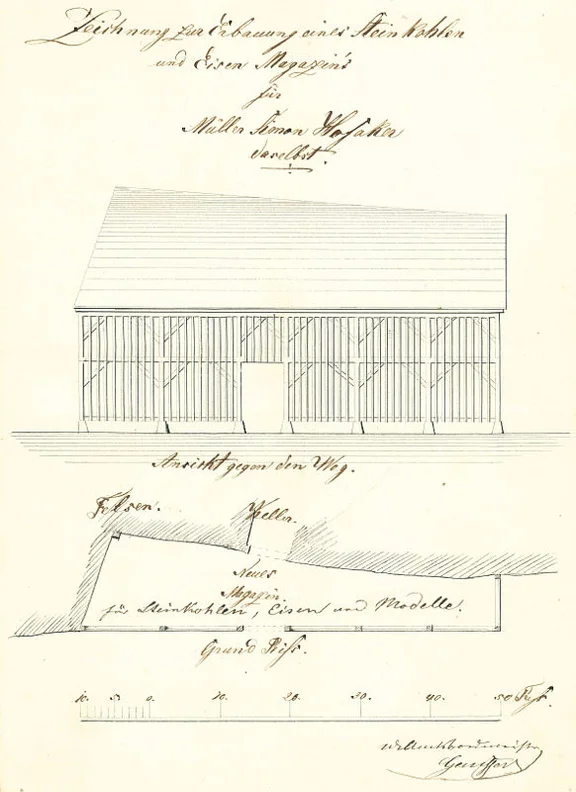 Zeichnung zur Erbauung eines Steinkohlen
und Eisen Magazin's
für
Müller Simon
daselbst.
Ansicht gegen den Weg.
Felsen. Keller.
Neues
Magazin.
für Steinkohlen, Eisen und Modelle.
Grund Riss.
10. 5. 0. 10. 20. 30. 40. 50 Fuß.